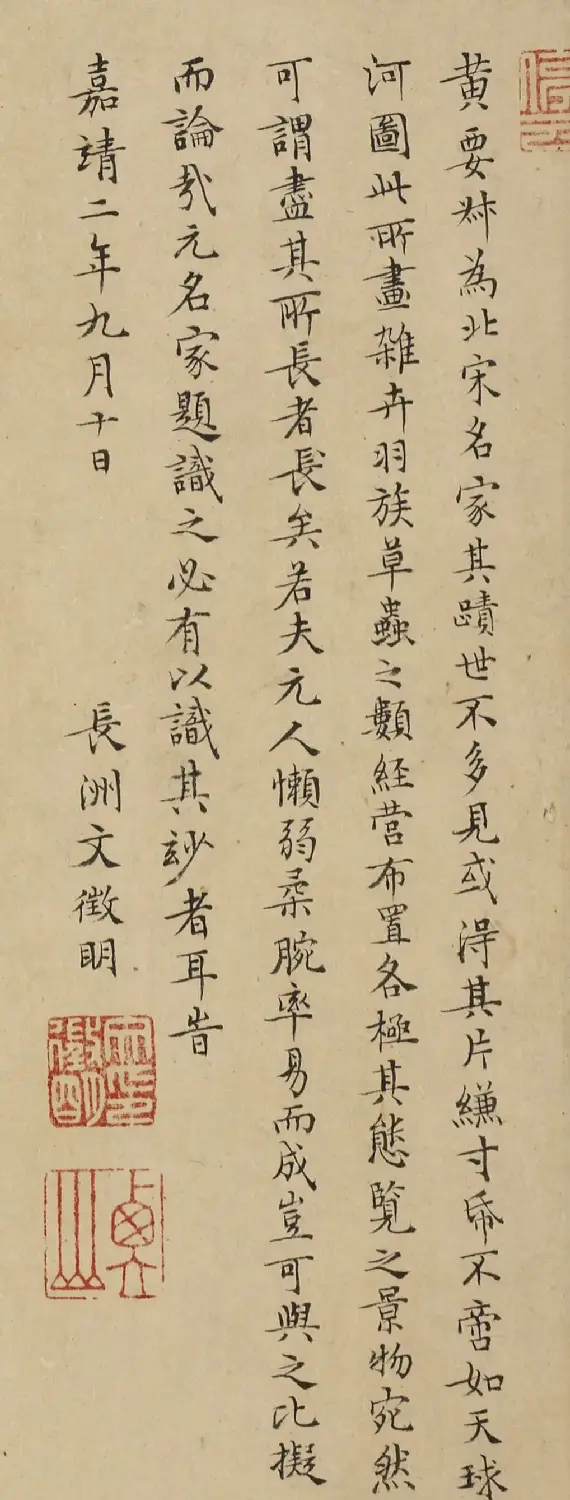 黃要叔為北宋名家其蹟世不多見或淂其片縑寸帋不啻如天球
河圖此所畫雜卉羽族草蟲之類經營布置各極其態覽之景物宛然
可謂盡其所長者長矣若夫元人懶弱柔腕率易而成豈可與之比擬
而論哉元名家題識之必有以識其玅者耳旹
嘉靖二年九月十日
長洲文徵明